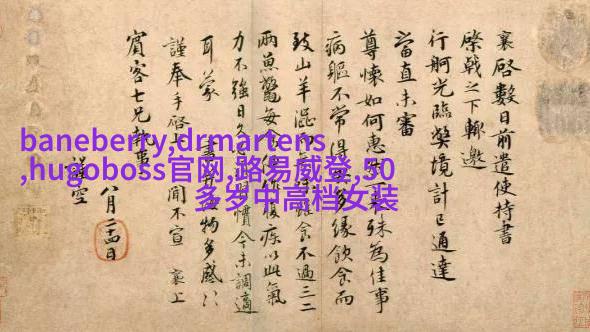 襄啓數日前遣使持書
棨戟之下輙邀
行舸光臨弊境計已通達
當直未審
尊懷如何惠 殊為佳事
病軀不常得 多緣飲食而
致山羊澁 食不過三二
兩魚鱉每食 腹疾以此氣
力不強日久 慣今未調適
耳蒙
物多感〻
謹奉手啓 聞不宣 襄上
賓客七兄執事
謹空 八月二十四日
baneberry,drmartens
,hugoboss官网,路易威登,50
多岁中高档女装